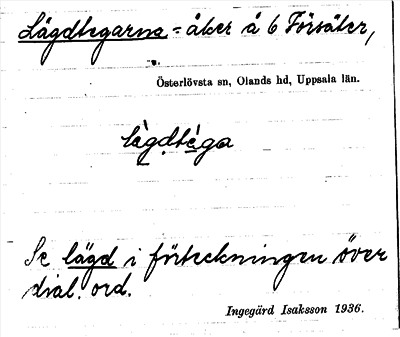 Lägdtegarna = åker å 6 Försäter,
Österlövsta sn, Olands hd, Uppsala län.
lègdtèga
Se lägd i förteckningen över
dial. ord.
Ingegärd Isaksson 1936.